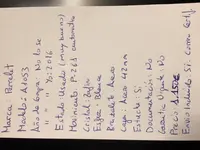 Marca Perrelet
Modelo A1053
Año de compra: No lo se
" " 20: 2016
Estado Usado (muy bueno)
Movimiento P-261 automatico
Cristal: Zafiro
Esfera Blanca
Brazalete Acero
Caja Acero 42mm
Estuche Si
Documentacion: No
Garantia Vigente: No
Precio
Envio Incluido Si, correo Certif